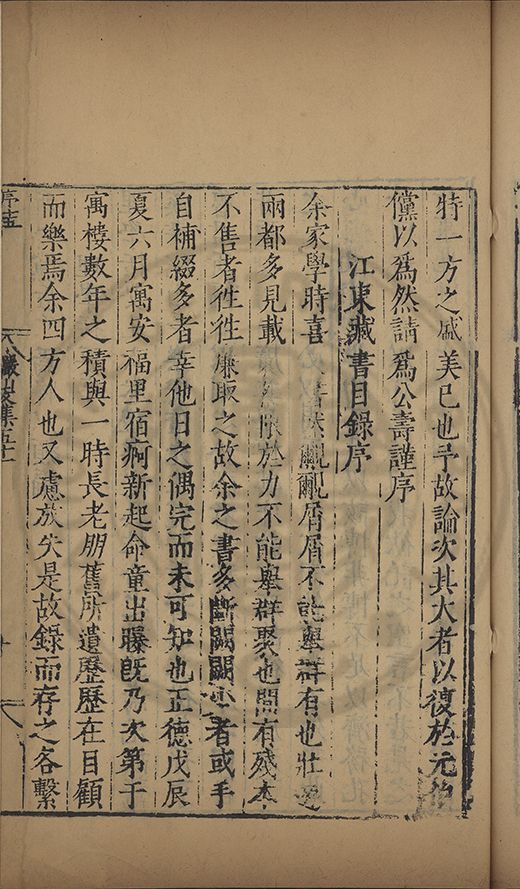 特一方之盛美已也予故論次其大者以復於元
儻以爲然請爲公壽謹序
江東藏書目錄序
余家學時喜書然覼覼屑屑不能舉群有也壯遊
兩都多見載然限於力不能舉群聚也間有殘本
不售者徃徃廉取之故余之書多斷闕闕少者或手
自補綴多者幸他日之偶完而未可知也正德戊辰
夏六月寓安福里宿痾新起命童出曝旣乃次第于
寓樓數年之積與一時長老朋舊所遺歷歷在目顧
而樂焉余四方人也又慮放失是故錄而存之各繫